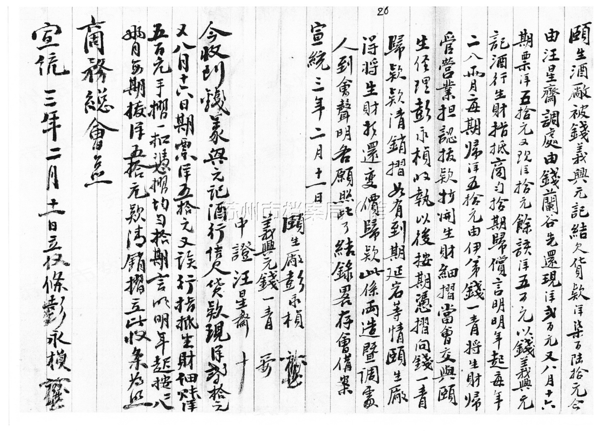 20
頤生酒廠被錢義興元記結欠貨款洋柒百陸拾元今
由汪星齋調處由錢蘭谷先還現洋弍百元又八月十六
期票洋五拾元又現洋拾元餘該洋五百元以錢義興元
記酒行生財指抵商勻拾期歸償言明明年起每年
二八兩月每期歸洋五拾元由伊弟錢一青將生財歸
管營業担認拔款抄開生財細摺當會交與頤
生經理彭永楨收執以後按期憑摺向錢一青
歸款款清銷摺如有到期延宕等情頤生廠
得將生財折還變價歸款此係兩造暨調處
人到會聲明各願照此了結錄畧存會備案
宣統三年二月十一日
頤生廠彭永楨
義興元錢一青
中證汪星齋 十
今收到錢義興元記酒行結欠貨款現洋弍拾元
又八月十六日期票洋五拾元又該行指抵生財細摺洋
五百元手摺一扣憑摺均勻拾期言明明年起按二八
兩月每期拔洋五拾元款清銷摺立此收条為照
商務總會照
宣統三年二月十一日立收條彭永楨
苏州市档案局(馆)